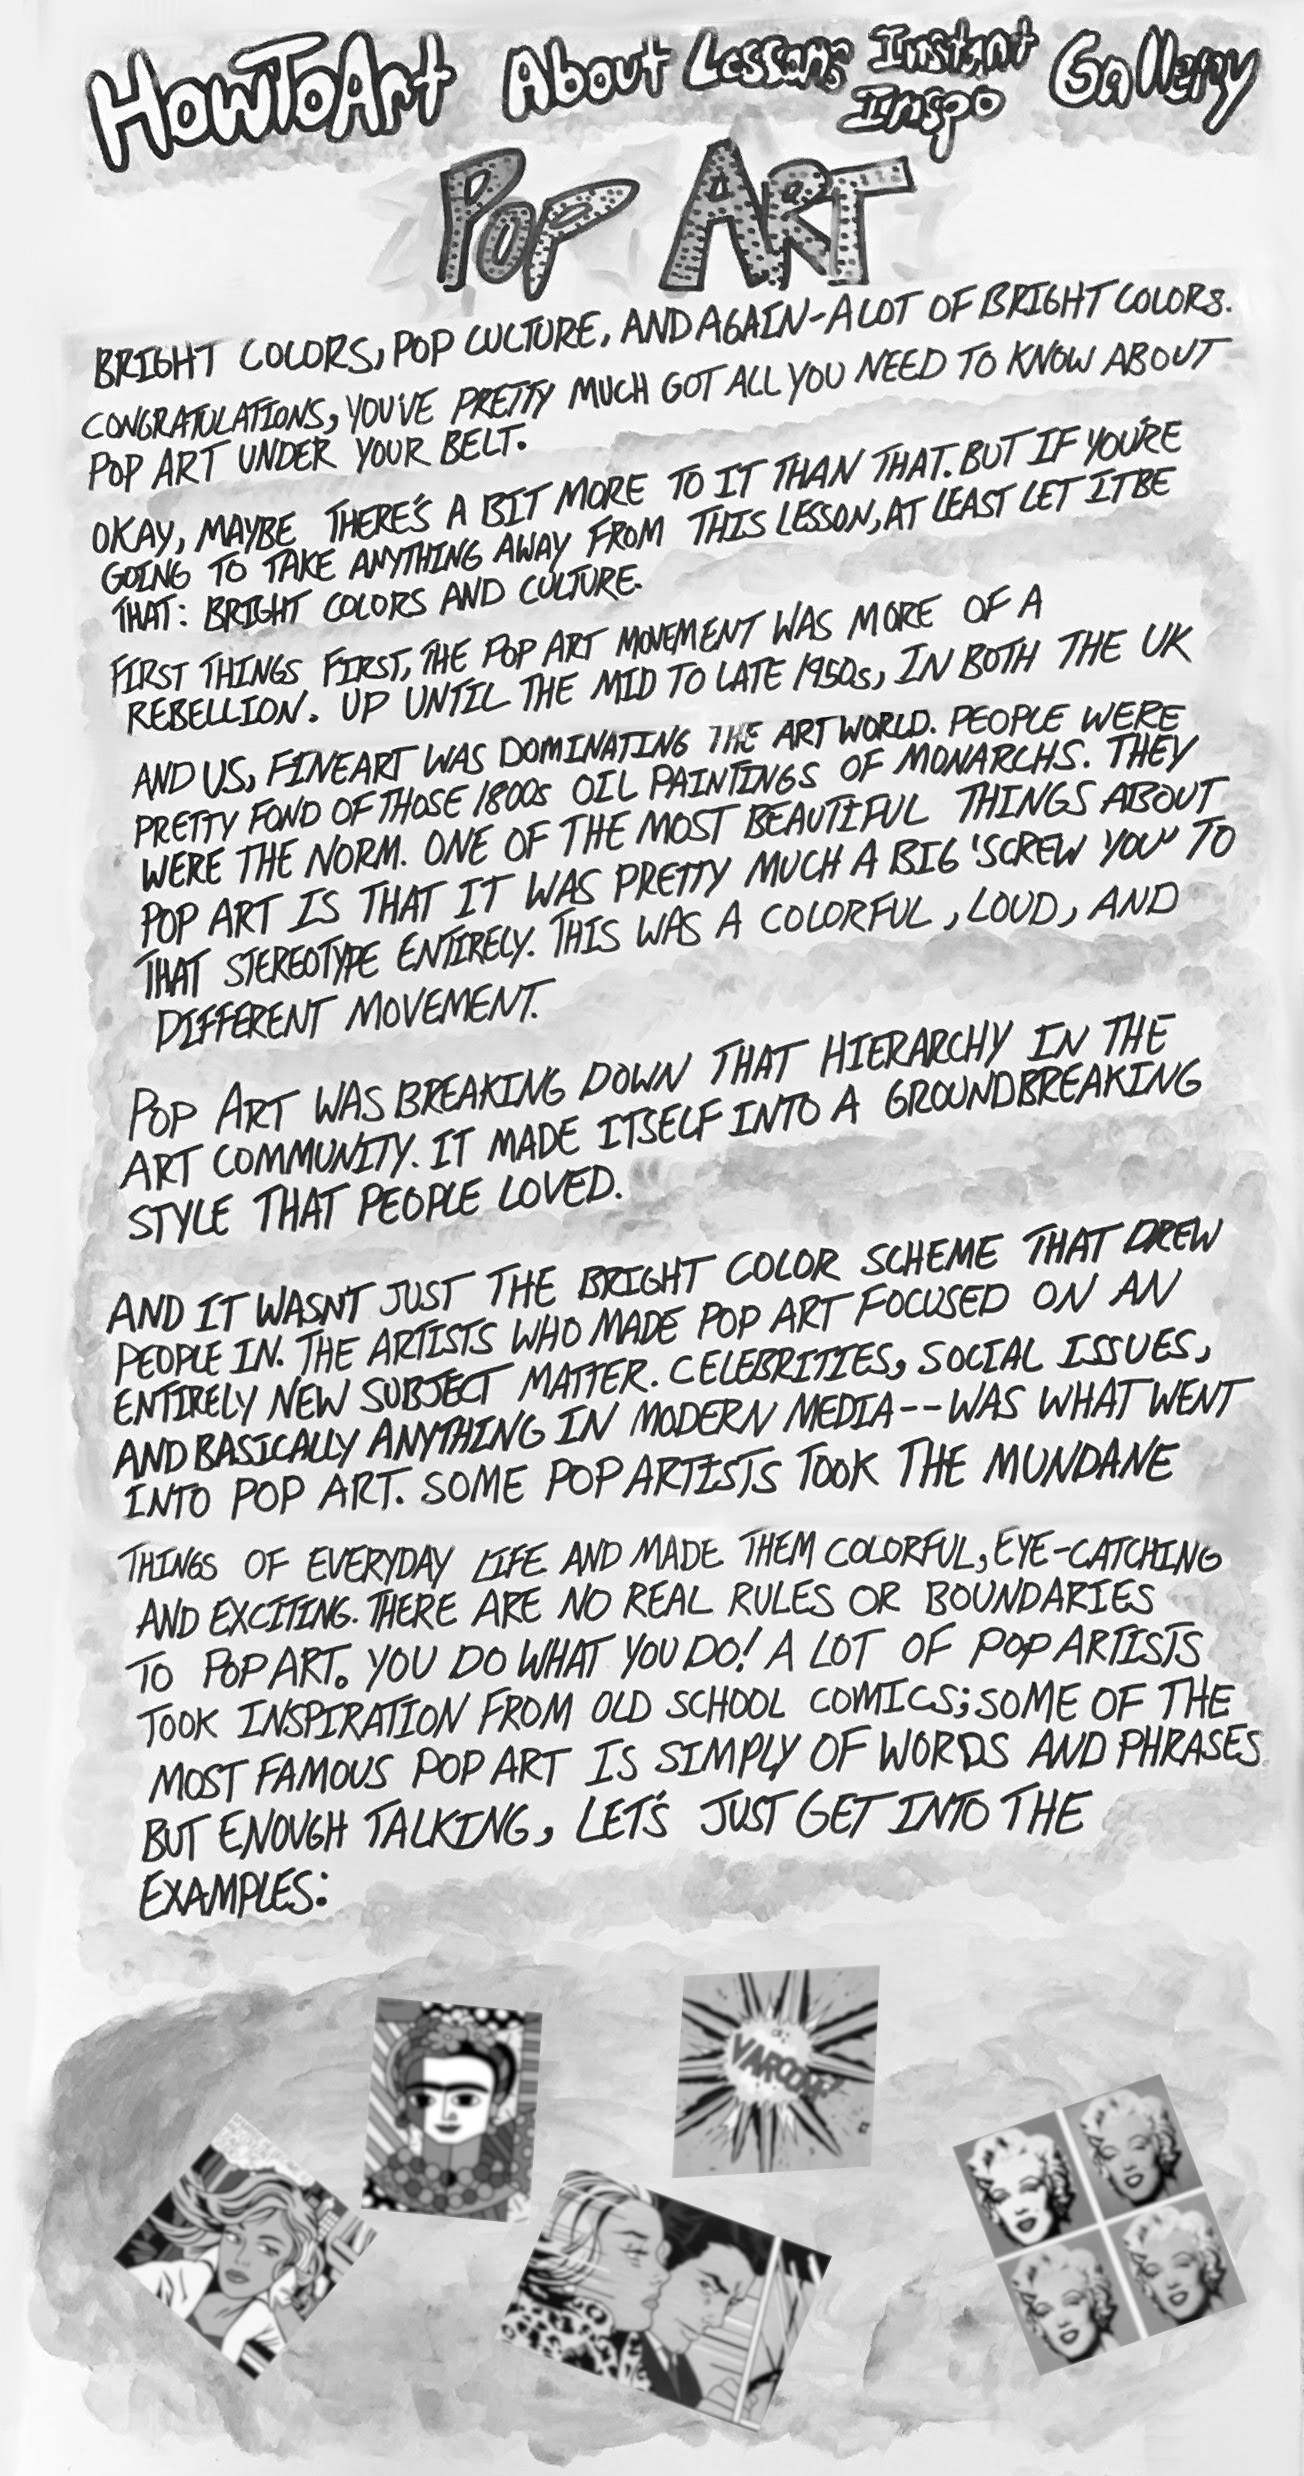 HowToArt About Lessons Instant Inspo Gallery
POP ART
BRIGHT COLORS, POP CULTURE, AND AGAIN-A LOT OF BRIGHT COLORS.
CONGRATULATIONS, YOU'VE PRETTY MUCH GOT ALL YOU NEED TO KNOW ABOUT
POP ART UNDER YOUR BELT.
OKAY, MAYBE THERE'S A BIT MORE TO IT THAN THAT. BUT IF YOU'RE
GOING TO TAKE ANYTHING AWAY FROM THIS LESSON, AT LEAST LET IT BE
THAT: BRIGHT COLORS AND CULTURE.
FIRST THINGS FIRST, THE POP ART MOVEMENT WAS MORE OF A
REBELLION. UP UNTIL THE MID TO LATE 1950s, IN BOTH THE UK
AND US, FINE ART WAS DOMINATING THE ART WORLD. PEOPLE WERE
PRETTY FOND OF THOSE 1800s OIL PAINTINGS OF MONARCHS. THEY
WERE THE NORM. ONE OF THE MOST BEAUTIFUL THINGS ABOUT
POP ART IS THAT IT WAS PRETTY MUCH A BIG 'SCREW YOU" TO
THAT STEREOTYPE ENTIRELY. THIS WAS A COLORFUL, LOUD, AND
DIFFERENT MOVEMENT.
POP ART WAS BREAKING DOWN THAT HIERARCHY IN THE
ART COMMUNITY. IT MADE ITSELF INTO A GROUNDBREAKING
STYLE THAT PEOPLE LOVED.
AND IT WASN'T JUST THE BRIGHT COLOR SCHEME THAT DREW
PEOPLE IN. THE ARTISTS WHO MADE POP ART FOCUSED ON AN
ENTIRELY NEW SUBJECT MATTER. CELEBRITIES, SOCIAL ISSUES,
AND BASICALLY ANYTHING IN MODERN MEDIA--WAS WHAT WENT
INTO POP ART. SOME POP ARTISTS TOOK THE MUNDANE
THINGS OF EVERYDAY LIFE AND MADE THEM COLORFUL, EYE-CATCHING
AND EXCITING. THERE ARE NO REAL RULES OR BOUNDARIES
TO POP ART. YOU DO WHAT YOU DO! A LOT OF POP ARTISTS
TOOK INSPIRATION FROM OLD SCHOOL COMICS; SOME OF THE
MOST FAMOUS POP ART IS SIMPLY OF WORDS AND PHRASES.
BUT ENOUGH TALKING, LET'S JUST GET INTO THE
EXAMPLES: